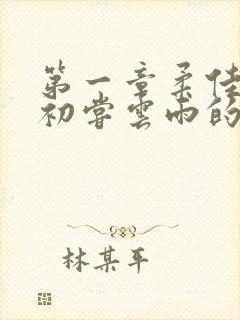 第一章柔佳
初尝雲雨的
林某平